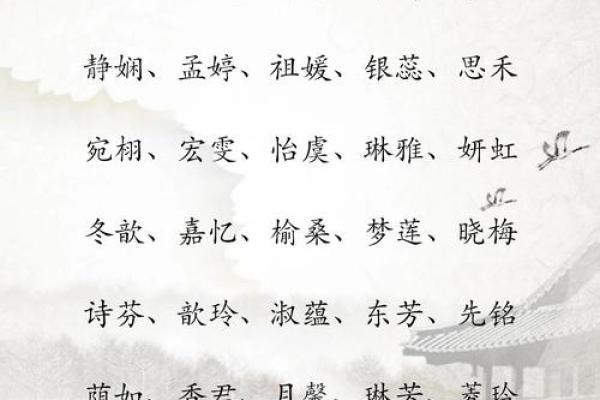 静娴、孟婷、祖媛、银蕊、思禾
宛栩、宏雯、怡虞、琳雅、妍虹
冬歆、嘉忆、榆桑、梦莲、晓梅
诗芬、歆玲、淑蕴、东芳、先铭
荫如、香君、月馨、琳芳、菱玲